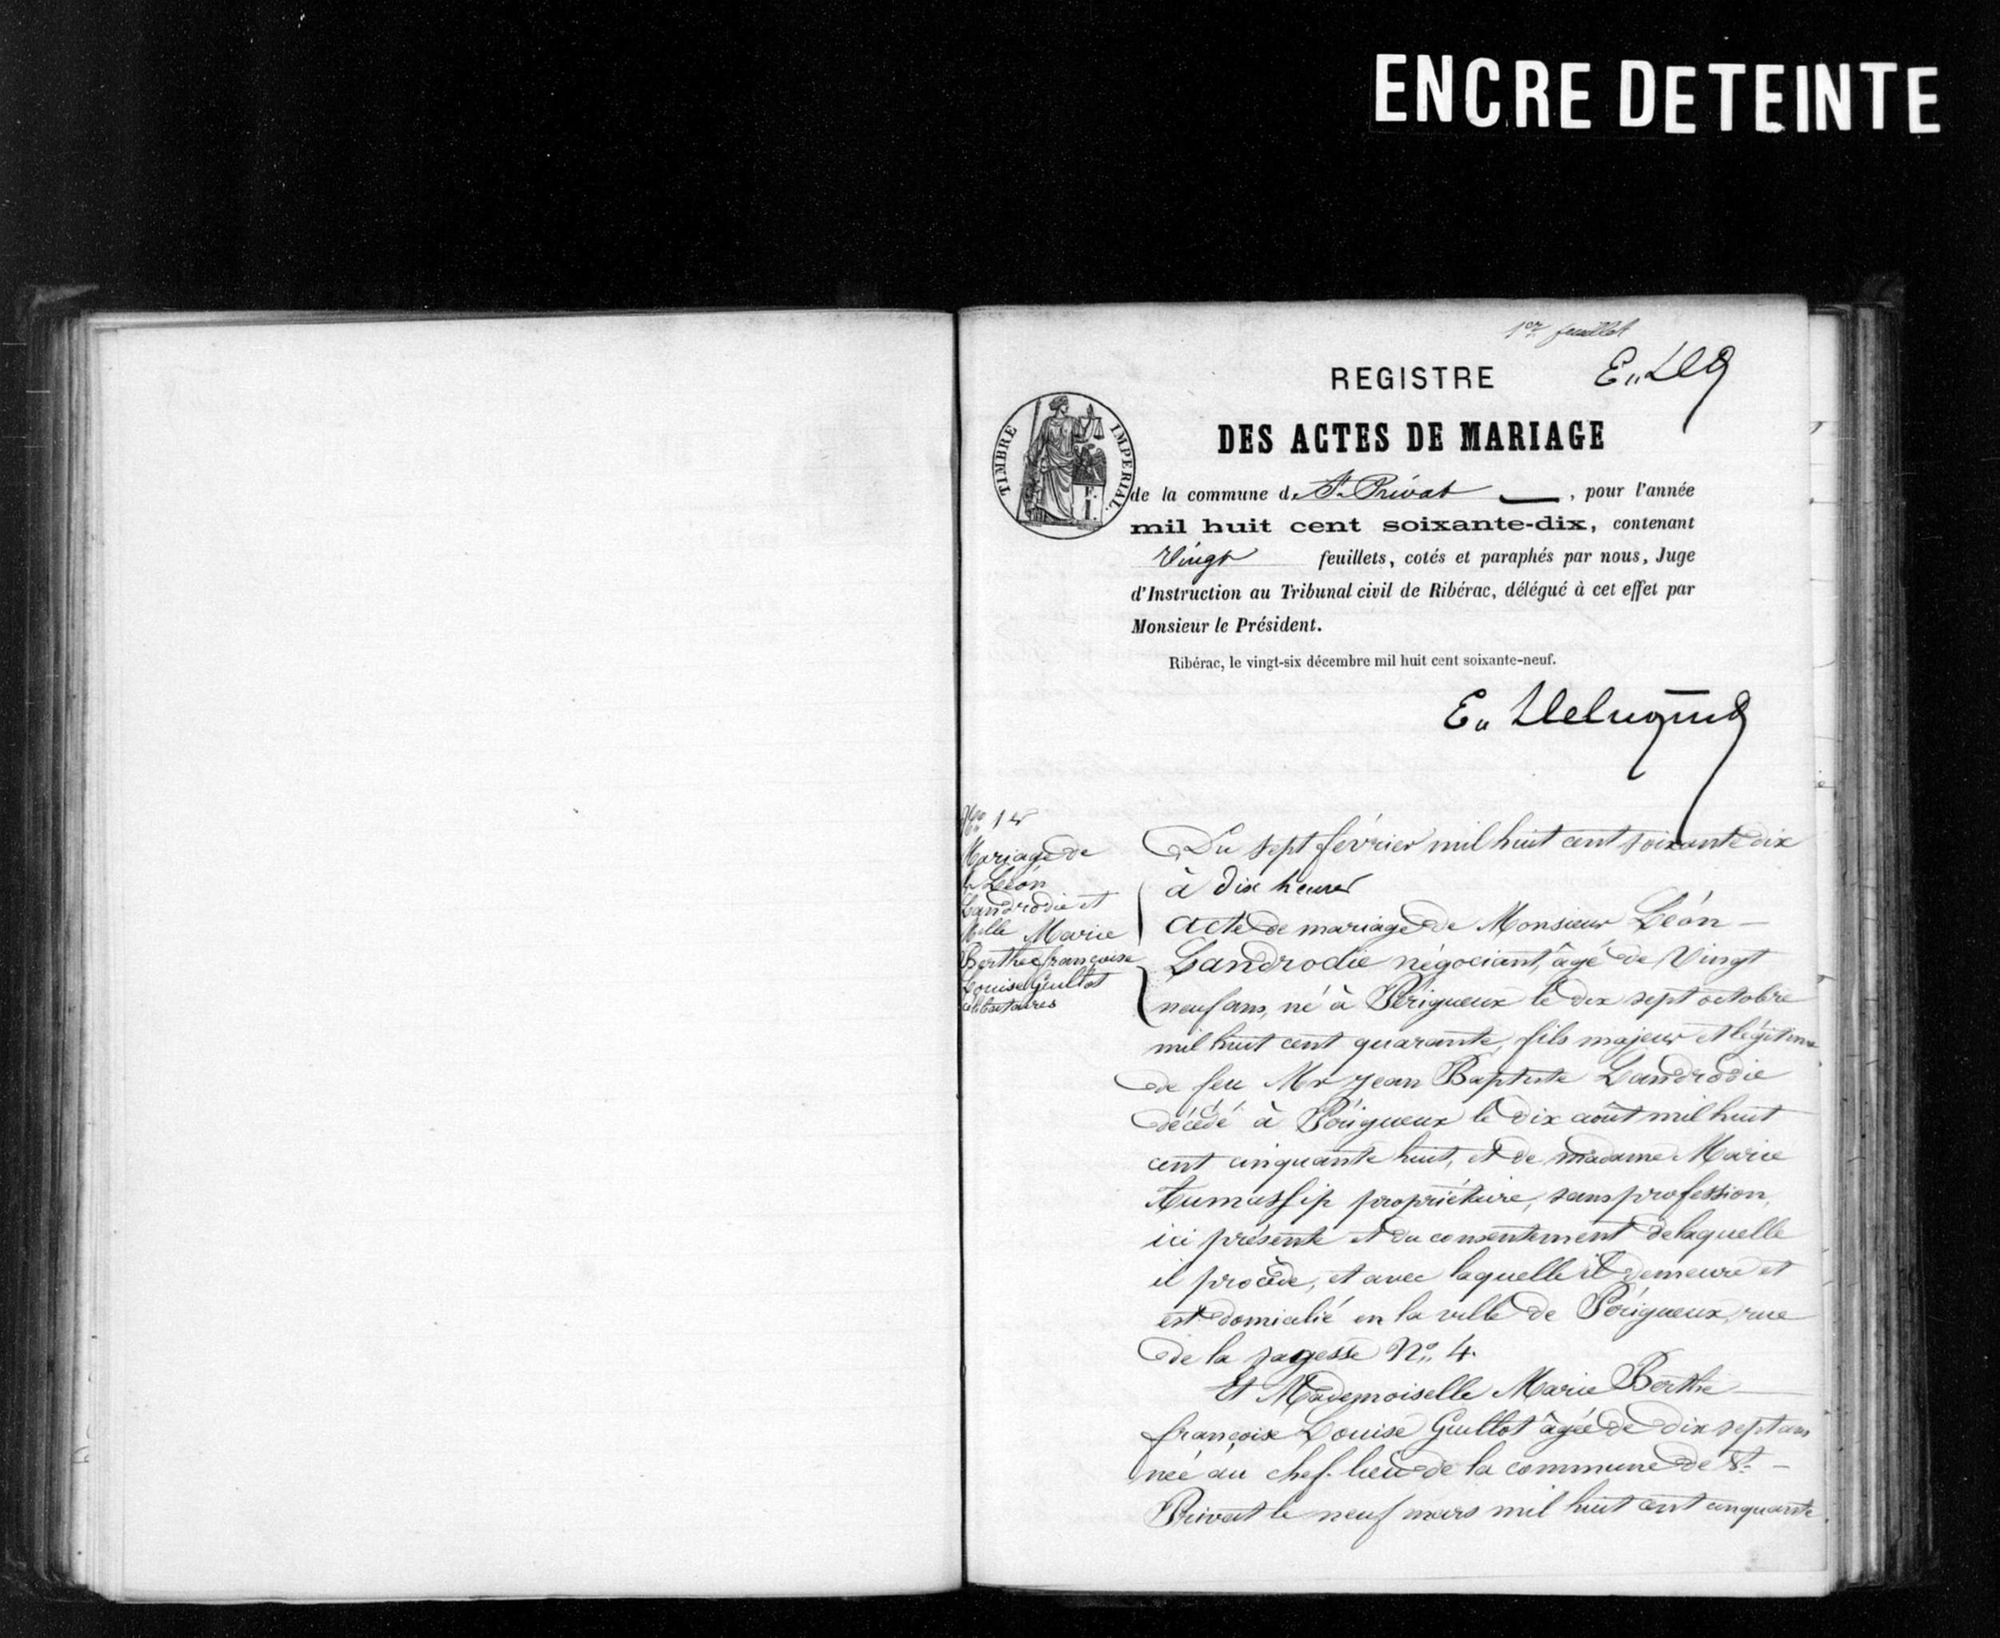 ENCRE DETEINTE
1er feuillet
REGISTRE
DES ACTES DE MARIAGE
TIMBRE IMPERIAL.
de la commune de St. Privat , pour l'année
mil huit cent soixante-dix, contenant
Vingt feuillets, cotés et paraphés par nous, Juge
d'Instruction au Tribunal civil de Ribérac, délégué à cet effet par
Monsieur le Président.
Ribérac, le vingt-six décembre mil huit cent soixante-neuf.
No 1er
Mariage de
Léon
Landrodie et
Melle Marie
Berthe françoise
Louise Guillot
célibataires
Du sept février mil huit cent soixante dix
à dix heures
acte de mariage de Monsieur Léon
Landrodie négociant, âgé de Vingt
neuf ans, né à Périgueux le dix sept octobre
mil huit cent quarante, fils majeur et légitime
de feu Mr jean Baptiste Landrodie
décédé à Périgueux le dix août mil huit
cent cinquante huit, et de madame Marie
propriétaire, sans profession,
ici présente et du consentement de laquelle
il procède, et avec laquelle il demeure et
est domicilié en la ville de Périgueux, rue
de la sagesse No. 4.
Et Mademoiselle Marie Berthe
françoise Louise Guillot âgée de dix sept ans
née au chef-lieu de la commune de St.
Privat le neuf mars mil huit cent cinquante